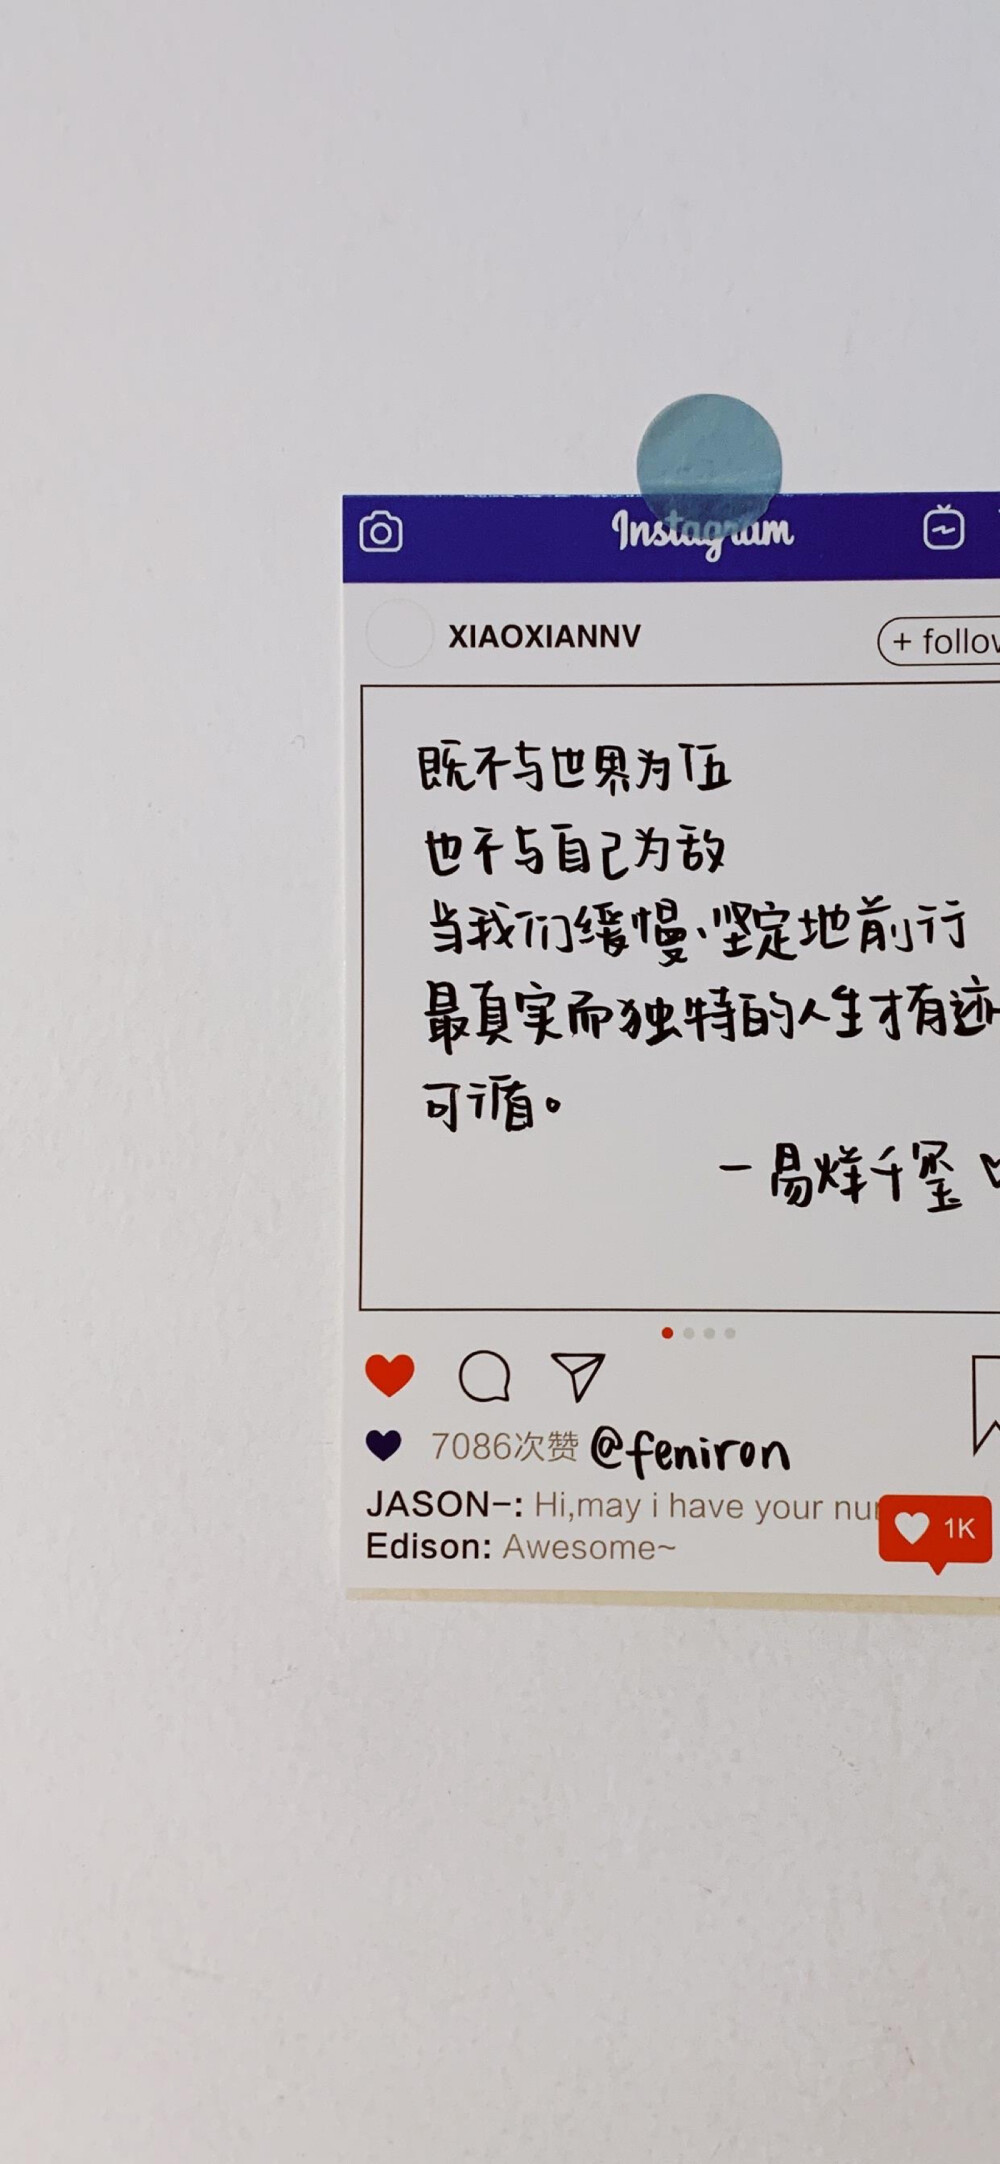 Instagram
XIAOXIANNV
+ follow
既不与世界为伍
也不与自己为敌
当我们缓慢、坚定地前行
最真实而独特的人生才有迹
可循。
－易烊千玺
7086次赞 @feniron
JASON-: Hi,may i have your nu
1K
Edison: Awesome~